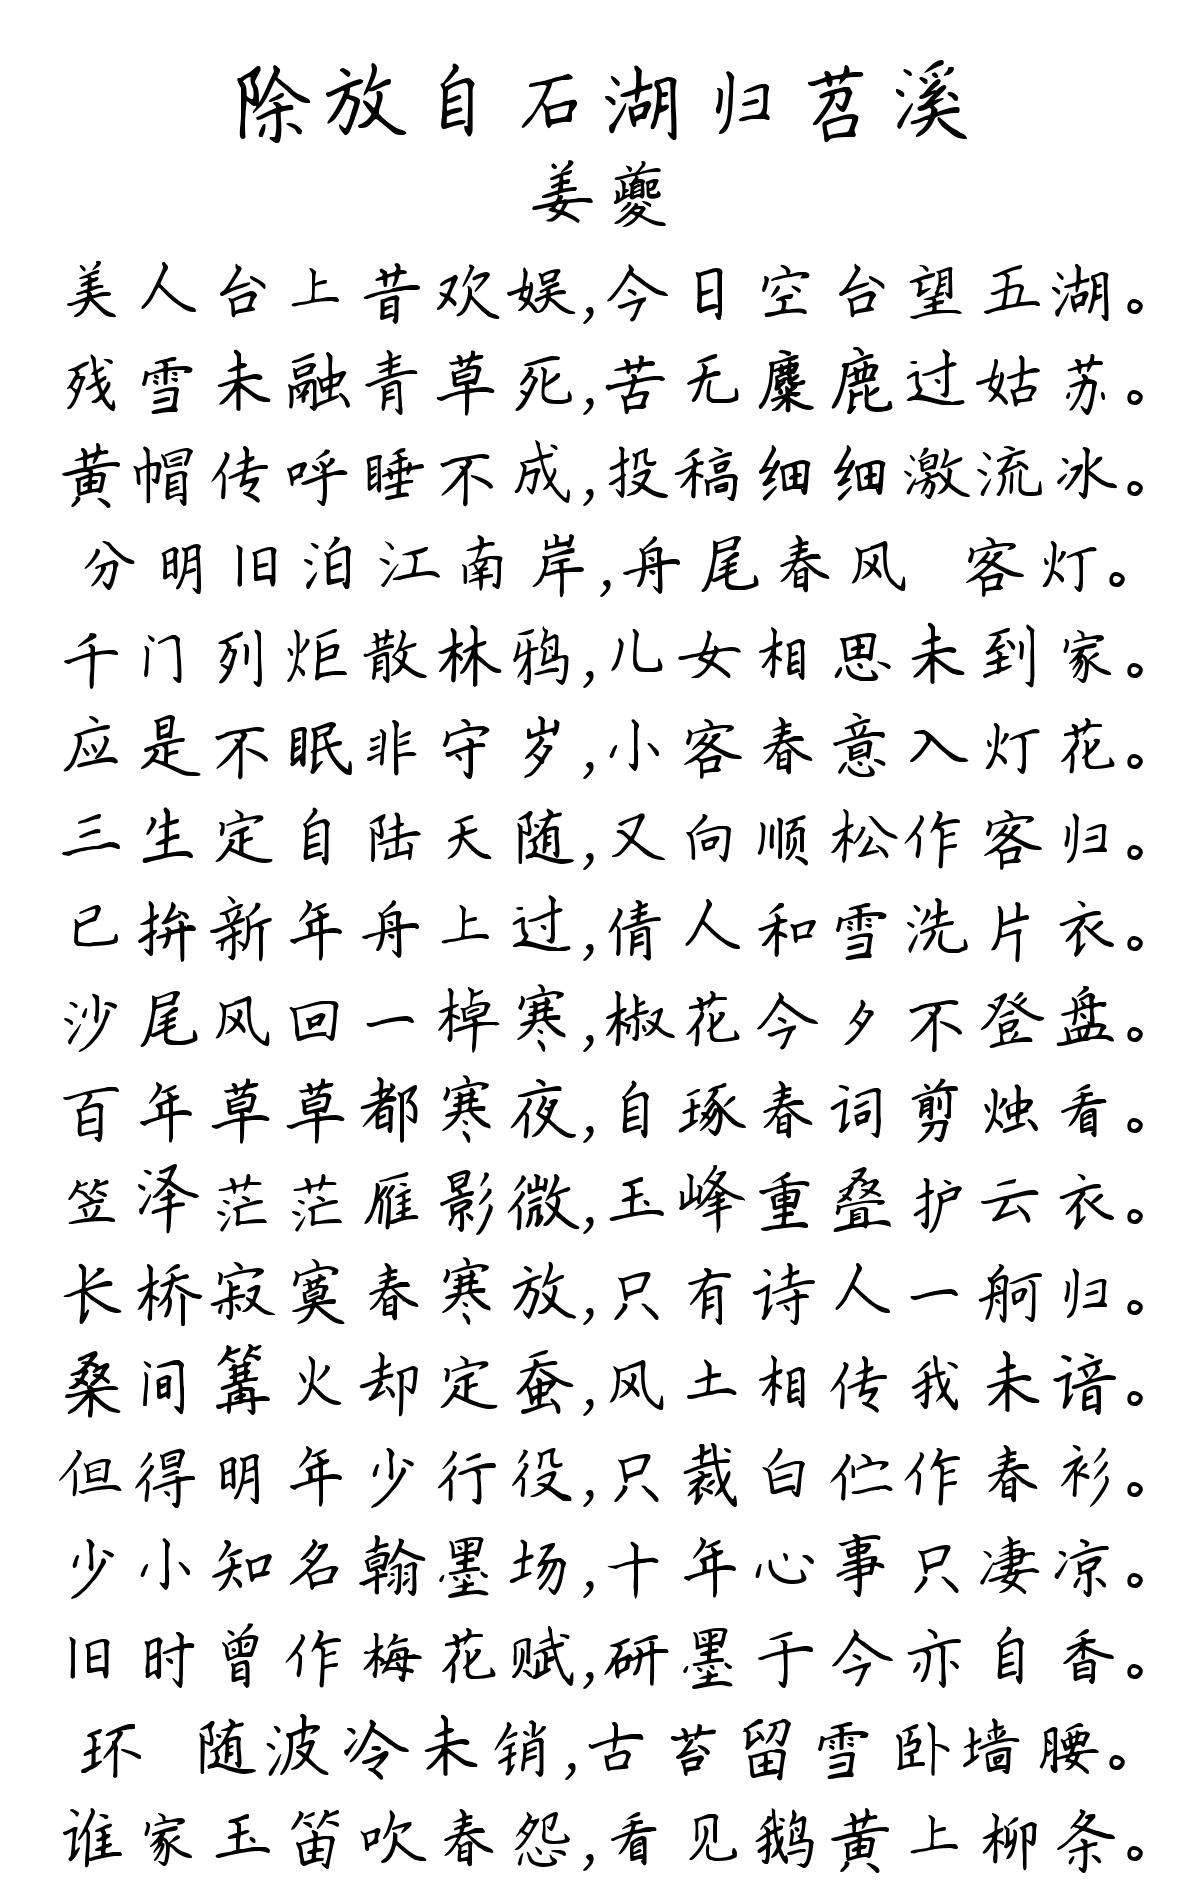 除放自石湖归苕溪
姜夔
美人台上昔欢娱,今日空台望五湖。
残雪未融青草死,苦无麋鹿过姑苏。
黄帽传呼睡不成,投稿细细激流冰。
分明旧泊江南岸,舟尾春风 客灯。
千门列炬散林鸦,儿女相思未到家。
应是不眠非守岁,小客春意入灯花。
三生定自陆天随,又向顺松作客归。
已拚新年舟上过,倩人和雪洗片衣。
沙尾风回一棹寒,椒花今夕不登盘。
百年草草都寒夜,自琢春词剪烛看。
笠泽茫茫雁影微,玉峰重叠护云衣。
长桥寂寞春寒放,只有诗人一舸归。
桑间篝火却定蚕,风土相传我未谙。
但得明年少行役,只裁白伫作春衫。
少小知名翰墨场,十年心事只凄凉。
旧时曾作梅花赋,研墨于今亦自香。
环 随波冷未销,古苔留雪卧墙腰。
谁家玉笛吹春怨,看见鹅黄上柳条。